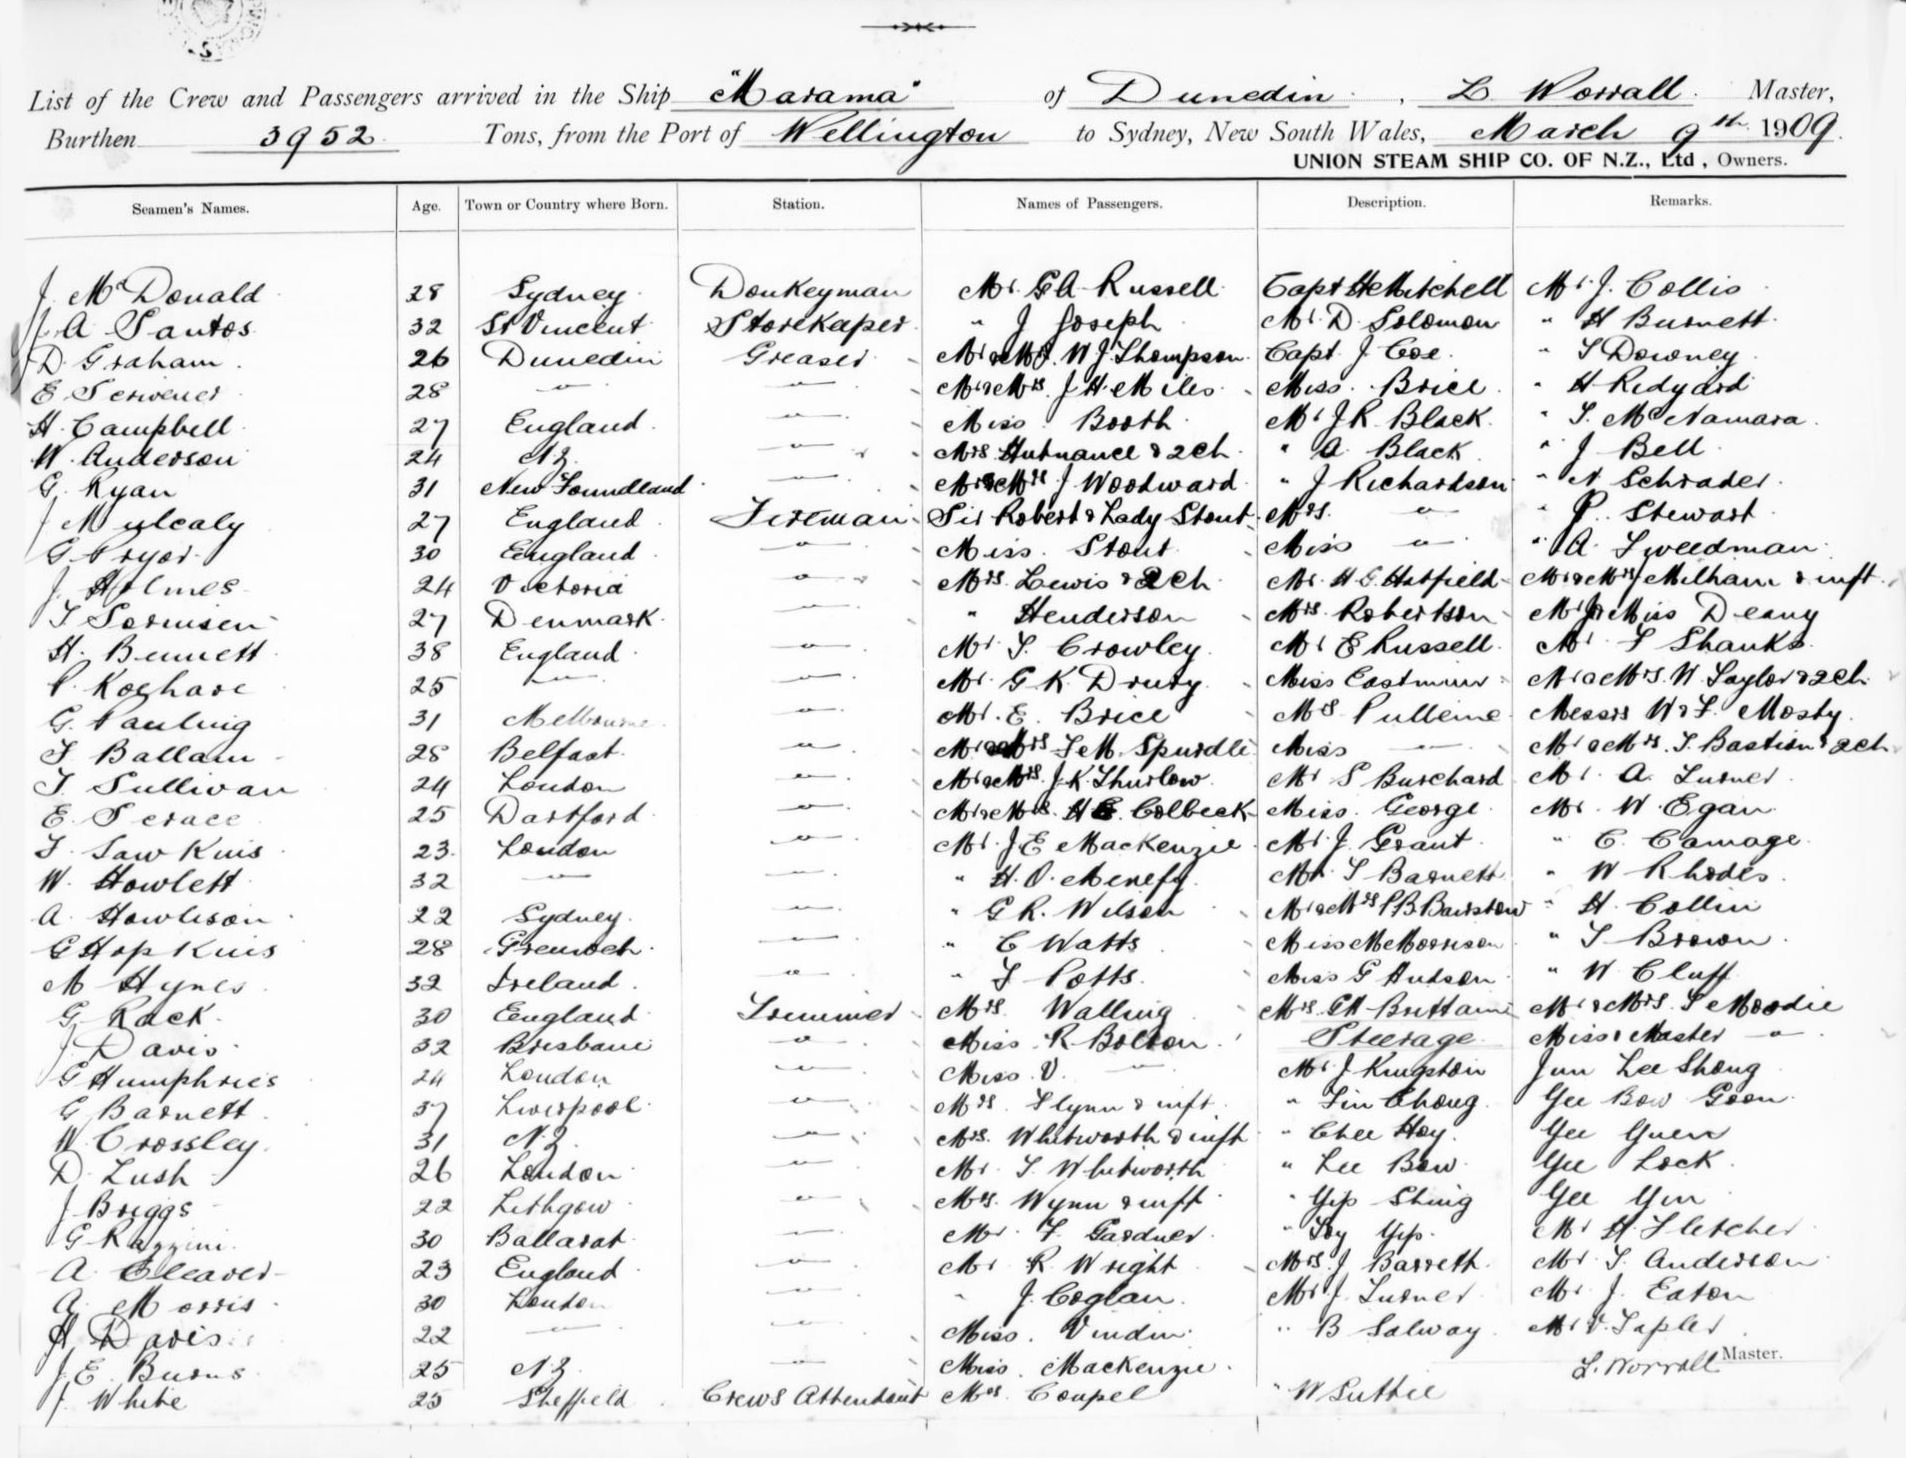 List of the Crew and Passengers arrived in the Ship "Marama" of Dunedin, L Worrall Master,
Burthen 3952 Tons, from the Port of Wellington to Sydney, New South Wales, March 9th 1909.
UNION STEAM SHIP CO. OF N.Z., Ltd, Owners.
Seamen's Names. Age. Town or Country where Born. Station. Names of Passengers. Description. Remarks.
J. McDonald 28 Sydney Donkeyman Mr G A Russell Capt H Mitchell Mr J. Collis
J. A Santos 32 St Vincent Storekeeper " J Joseph Mr D Solomon " H Burnett
D. Graham 26 Dunedin Greaser Mr & Mrs W J. Thompson Capt J Coe " T Downey
E Scrivener 28 " " Mr & Mrs J H Miles Miss Brice " H Redyard
H. Campbell 27 England " Miss Booth Mr J R Black " T. McNamara
W. Anderson 24 N Z " Mrs & 2 ch " A Black " J Bell
G. Ryan 31 New Foundland " Mr & Mrs J Woodward " J Richardson " N Schrader
J Mulcaly 27 England Fireman Sir Robert & Lady Stout Mrs " " P. Stewart
G Pryor 30 England " Miss Stout Miss " " A Tweedman
J. Holmes 24 Victoria " Mrs Lewis & 2 ch Mr H G Hatfield Mr & Mrs J Milham & inft
T Sorensen 27 Denmark " " Henderson Mrs Robertson Mr J & Miss Deany
H. Bennett 38 England " Mr T. Crowley Mr E Russell Mr F Shanks
P. 25 " " Mr G K Drury Miss Mr & Mrs W Taylor & 2 ch
G. Pauling 31 Melbourne " Mr E. Brice Mrs Pulleine Messrs W & F. Mosty
F Ballam 28 Belfast " Mr & Mrs F M. Spurdle Miss " Mr & Mrs T. Bastion & 2 ch
T. Sullivan 24 London " Mr & Mrs J. K. Thurlow Mr S Burchard Mr A. Turner
E. Scrace 25 Dartford " Mr & Mrs H E Colbeck Miss George Mr W. Egan
F. 23 London " Mr J. E MacKenzie Mr J. Grant " C. Camage
W. Howlett 32 " " " H. O. Menefy Mr T Barnett " W Rhodes
A. Howlison 22 Sydney " " G R. Wilson Mr & Mrs P B Bairstow " H Collin
G Hopkins 28 " " C Watts Miss M Morrison " T Brown
M Hynes 32 Ireland " " F Potts Miss G Hudson " W Cluff
G. Rack 30 England Trimmer Mrs Walling Mrs G H Mr & Mrs T Moodie
J Davis 32 Brisbane " Miss R Bolton Steerage Miss & Master "
G Humphries 24 London " Miss V. " Mr J Kingston Jun Lee Shong
G Barnett 37 Liverpool " Mrs Flynn & inft " Tin Chong Yee Bow Goon
W Crossley 31 N. Z " Mrs Whitworth & inft " Chee Hoy Yee Yuen
D Lush 26 London " Mr T Whitworth " Lee Bow Yee Lock
J Briggs 22 Lithgow " Mrs Wynn & inft " Yip Shing Yee Yin
G Razzini 30 Ballarat " Mr F. Gardner " Yip Mr H. Fletcher
A Cleaver 23 England " Mr R Wright Mrs J Barrett Mr T. Anderson
A. Morris 30 London " " J. Coglan Mr J Turner Mr J. Eaton
H Davis 22 " " Miss Vindin " B Salway Mr V. Tapler
J. E. Burns 25 N Z " Miss MacKenzie L. Worrall Master.
J. White 25 Sheffield Crews Attendant Mrs Coupel " W Suttie